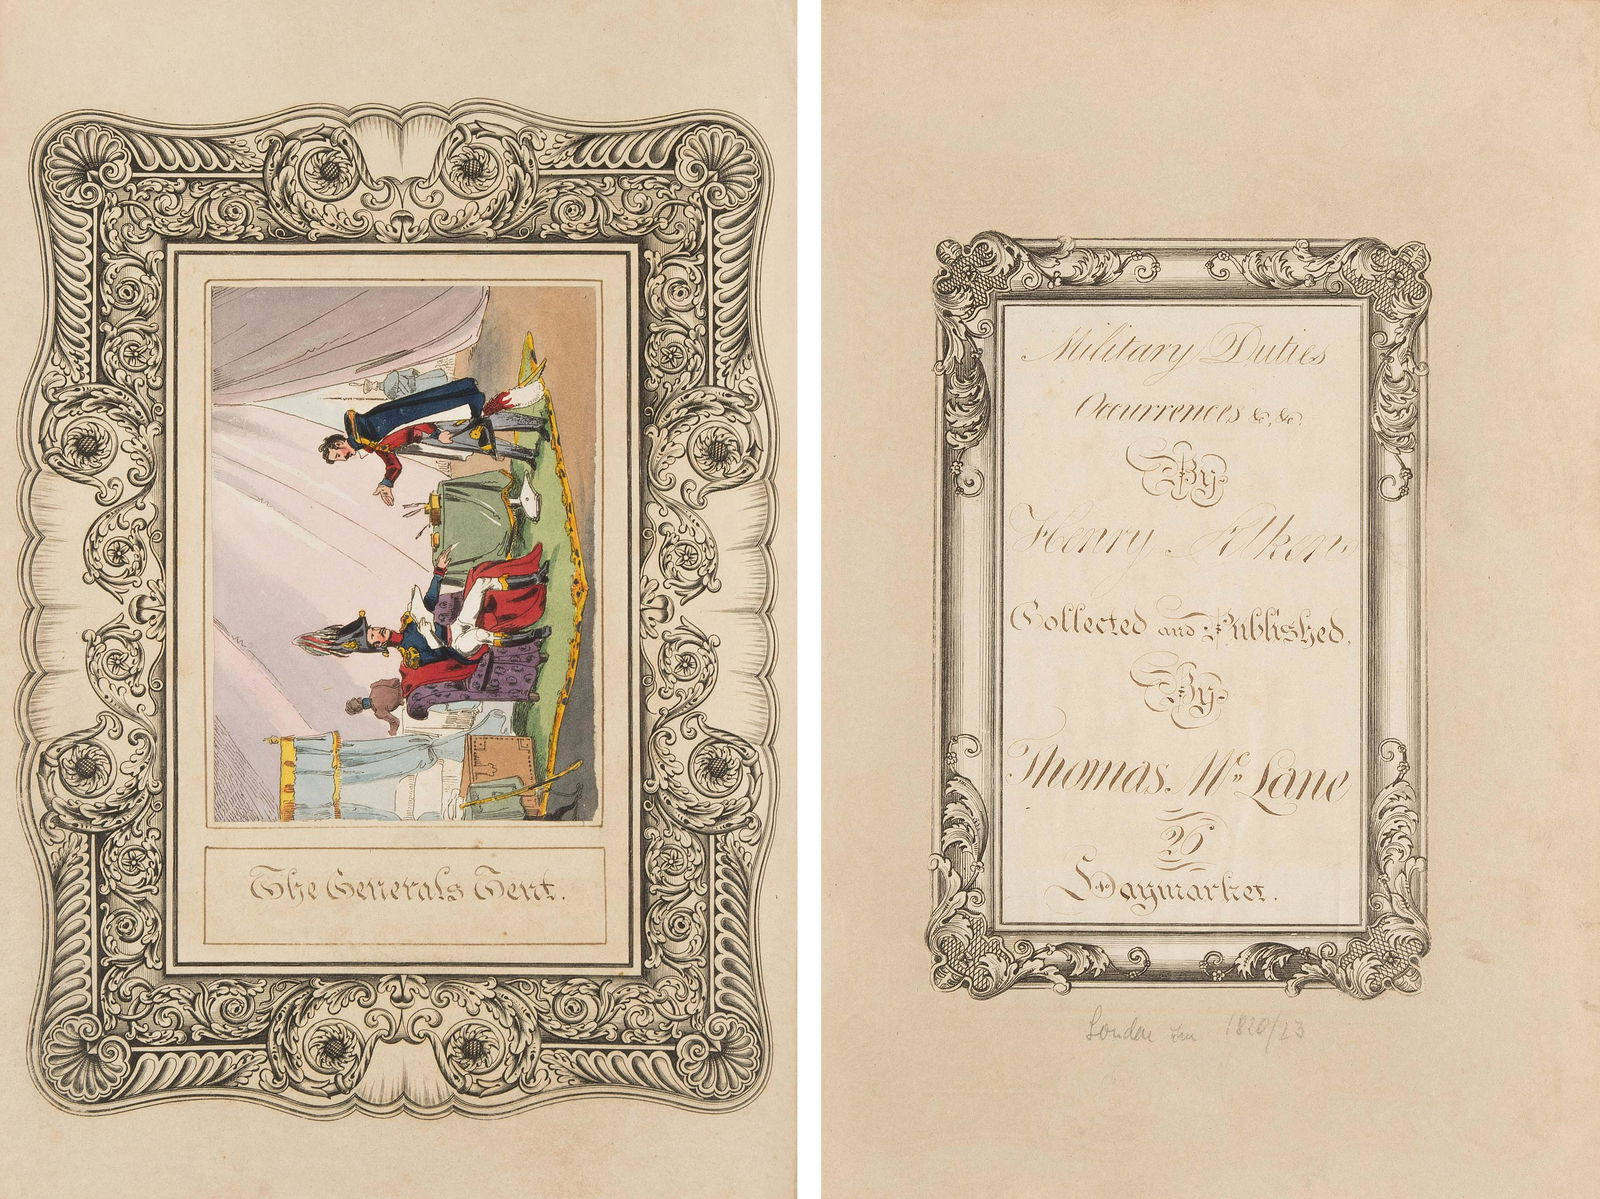 The Generals Tent.
Military Duties
Occurrences &c, &c.
By
Henry Alken
Collected and Published,
By
Thomas Mc Lane
26
Haymarket.
London um 1820/23